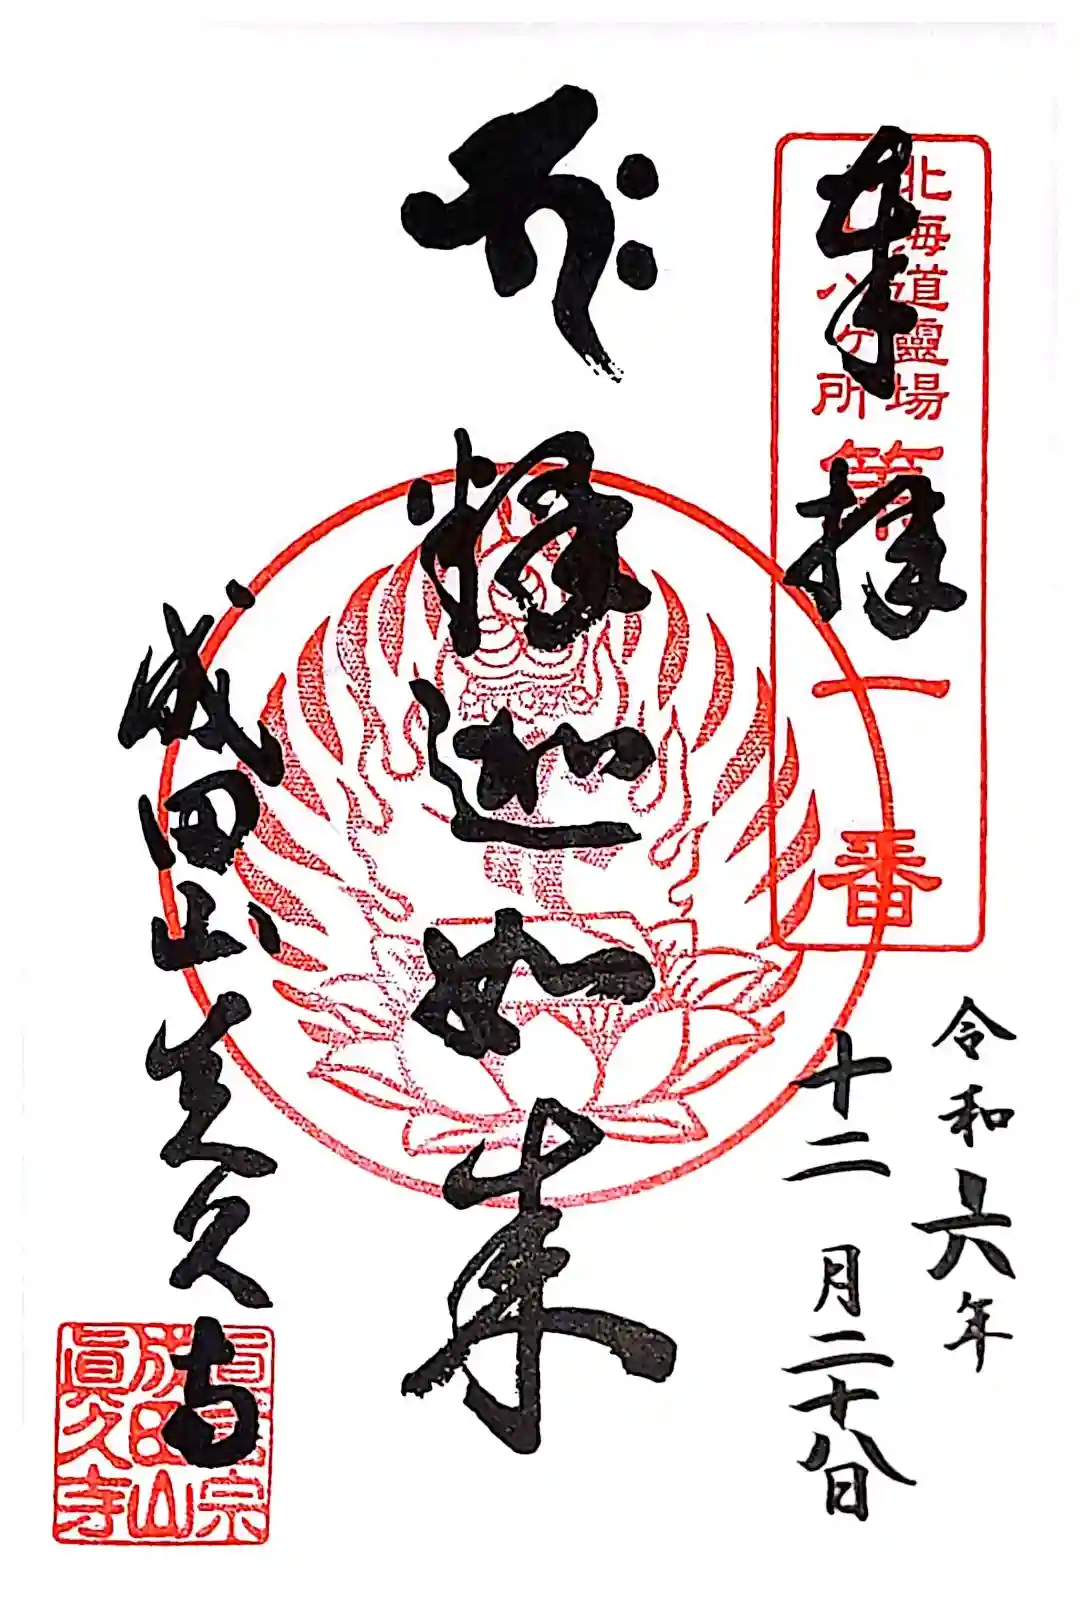 奉拝
北海道靈場
八ヶ所
第一番
令和六年
十二月二十八日
釋迦如来
成田山真久寺
眞言宗
成田山
眞久寺